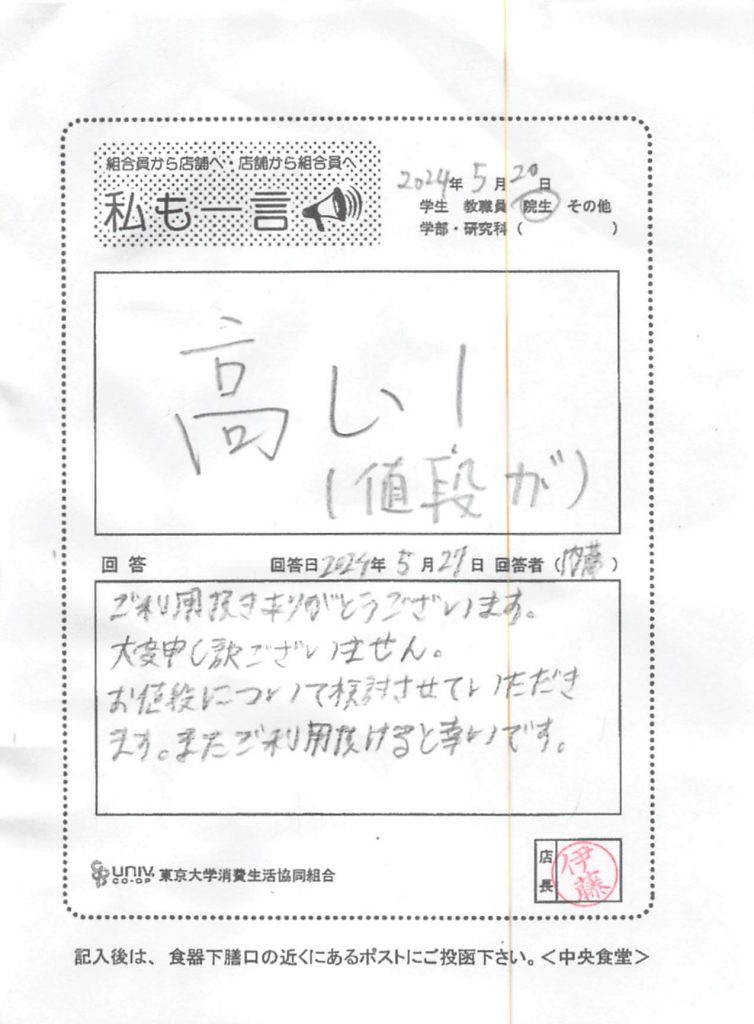 組合員から店舗へ・店舗から組合員へ
私も一言
2024年 5月 20日
学生 教職員 院生 その他
学部・研究科（ ）
高い！
（値段が）
回答 回答日2024年 5月27日 回答者（内藤）
ご利用頂きありがとうございます。
大変申し訳ございません。
お値段について検討させていただき
ます。またご利用頂けると幸いです。
UNIV. CO-OP 東京大学消費生活協同組合
店長 伊藤
記入後は、食器下膳口の近くにあるポストにご投函下さい。＜中央食堂＞